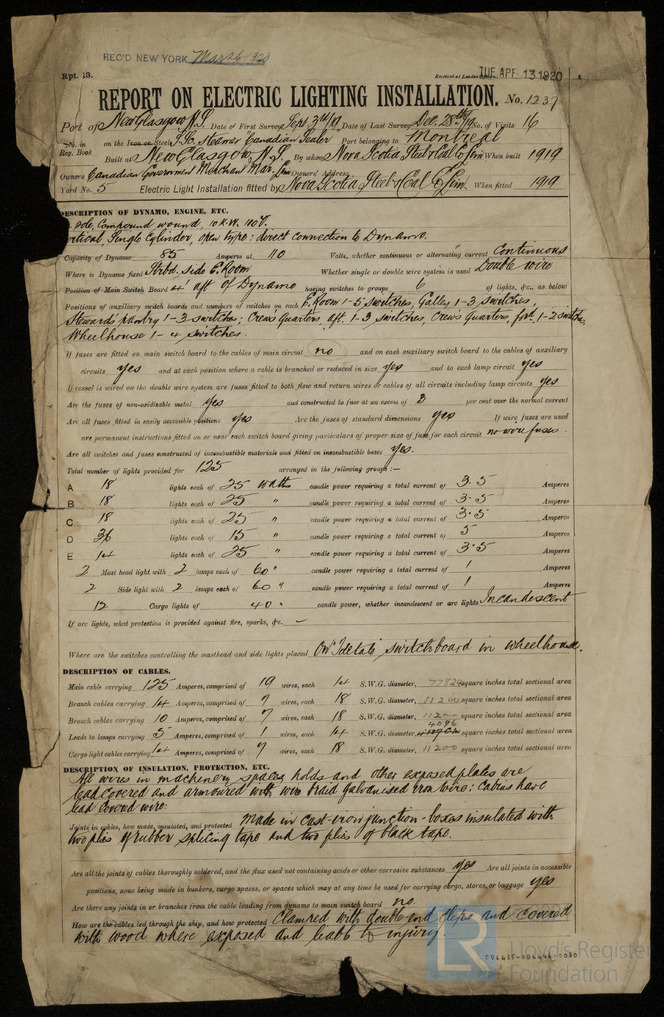 REC'D NEW YORK Mar 16 1920
Rpt. 13. Received at London Office TUE. APR. 13 1920
REPORT ON ELECTRIC LIGHTING INSTALLATION. No. 1237
Port of New Glasgow N.S. Date of First Survey Sept 3rd/19 Date of Last Survey Dec. 28th/19 No. of Visits 16
No. in Reg. Book on the Iron or Steel S.Sc. Steamer "Canadian Sealer" Port belonging to Montreal
Built at New Glasgow, N.S. By whom Nova Scotia Steel & Coal Co Lim When built 1919
Owners Canadian Government Merchant Mar. Lim Owners' Address
Yard No. 5 Electric Light Installation fitted by Nova Scotia Steel & Coal Co Lim. When fitted 1919
DESCRIPTION OF DYNAMO, ENGINE, ETC.
pole, Compound wound, 10 K.W. 110V.
Vertical, Single Cylinder, open type: direct connection to Dynamo.
Capacity of Dynamo 85 Amperes at 110 Volts, whether continuous or alternating current Continuous
Where is Dynamo fixed Starbd. side E. Room Whether single or double wire system is used Double wire
Position of Main Switch Board 4' aft of Dynamo having switches to groups 6 of lights, &c., as below
Positions of auxiliary switch boards and numbers of switches on each E. Room 1-5 switches, Galley 1-3 switches,
Stewards pantry 1-3 switches; Crew's Quarters aft. 1-3 switches, Crew's Quarters, ford. 1-2 switches,
Wheelhouse 1-4 switches.
If fuses are fitted on main switch board to the cables of main circuit no and on each auxiliary switch board to the cables of auxiliary
circuits yes and at each position where a cable is branched or reduced in size yes and to each lamp circuit yes
If vessel is wired on the double wire system are fuses fitted to both flow and return wires or cables of all circuits including lamp circuits yes
Are the fuses of non-oxidizable metal yes and constructed to fuse at an excess of 3 per cent over the normal current
Are all fuses fitted in easily accessible positions yes Are the fuses of standard dimensions yes If wire fuses are used
are permanent instructions fitted on or near each switch board giving particulars of proper size of fuse for each circuit no wire fuses.
Are all switches and fuses constructed of incombustible materials and fitted on incombustible bases yes.
Total number of lights provided for 125 arranged in the following groups :—
A 18 lights each of 25 watts candle power requiring a total current of 3.5 Amperes
B 18 lights each of 25 " candle power requiring a total current of 3.5 Amperes
C 18 lights each of 25 " candle power requiring a total current of 3.5 Amperes
D 36 lights each of 15 " candle power requiring a total current of 5 Amperes
E 14 lights each of 25 " candle power requiring a total current of 3.5 Amperes
2 Mast head light with 2 lamps each of 60 " candle power requiring a total current of 1 Amperes
2 Side light with 2 lamps each of 60 " candle power requiring a total current of 1 Amperes
12 Cargo lights of 40 " candle power, whether incandescent or arc lights Incandescent
If arc lights, what protection is provided against fire, sparks, &c. —
Where are the switches controlling the masthead and side lights placed switchboard in wheelhouse.
DESCRIPTION OF CABLES.
Main cable carrying 125 Amperes, comprised of 19 wires, each 14 S.W.G. diameter, square inches total sectional area
Branch cables carrying 14 Amperes, comprised of 7 wires, each 18 S.W.G. diameter, 11200 square inches total sectional area
Branch cables carrying 10 Amperes, comprised of 7 wires, each 18 S.W.G. diameter, square inches total sectional area
Leads to lamps carrying 5 Amperes, comprised of 1 wires, each 14 S.W.G. diameter, 4096 square inches total sectional area
Cargo light cables carrying 14 Amperes, comprised of 7 wires, each 18 S.W.G. diameter, 11200 square inches total sectional area
DESCRIPTION OF INSULATION, PROTECTION, ETC.
All wires in machinery spaces, holds and other exposed plates are
lead covered and armoured with wire braid galvanised iron wire: Cabins have
lead covered wire.
Joints in cables, how made, insulated, and protected Made in cast iron junction-boxes insulated with
two plies of rubber splicing tape and two plies of black tape.
Are all the joints of cables thoroughly soldered, and the flux used not containing acids or other corrosive substances yes Are all joints in accessible
positions, none being made in bunkers, cargo spaces, or spaces which may at any time be used for carrying cargo, stores, or baggage yes
Are there any joints in or branches from the cable leading from dynamo to main switch board no.
How are the cables led through the ship, and how protected Clamped with double end clips and covered
with wood where exposed and liable to injury.
LR Lloyd's Register
Foundation
004435-004446-0080